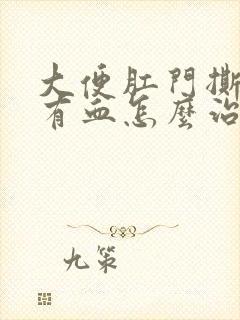 大便肛門撕
有血怎麼治
九策